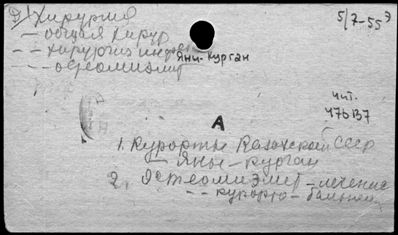 Д! Хирургия
5/7-55э
— общая хирур
— — хирургия инфек
Яны-Курган
— — остеомиэлит
чит.
476137
А
1. Курорты Казахской ССР
— Яны-Курган
2. Остеомиэлит — лечение
— — курорто — бальнеи